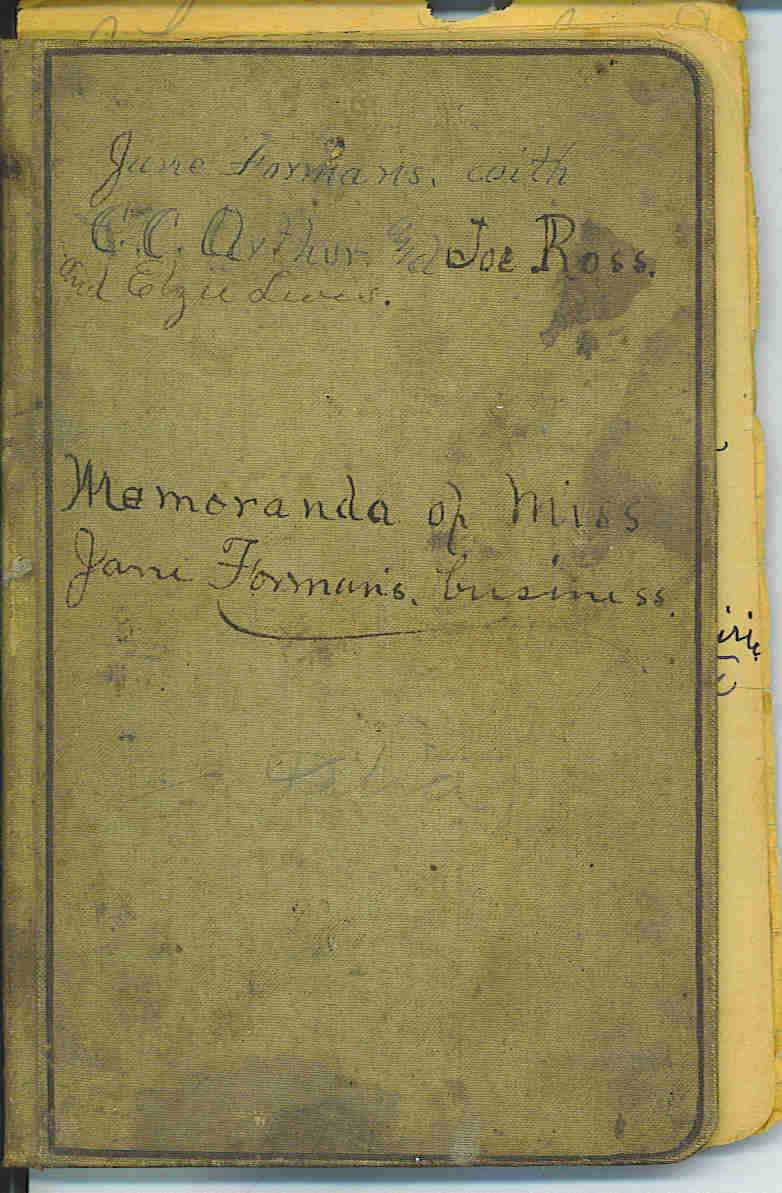 Jane Formans. with
C. C. Arthur and Joe Ross.
and Elzie Lewis.
Memoranda of Miss
Jane Forman's. business.